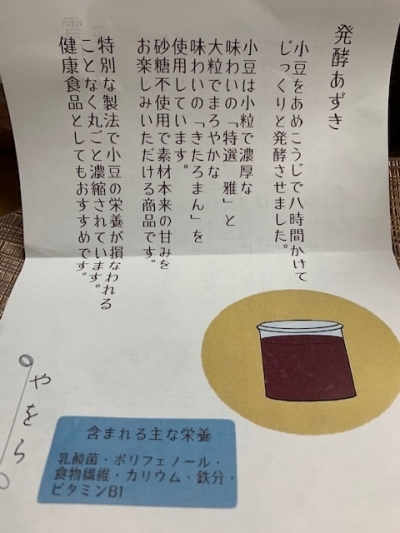 発酵あずき
小豆をあめこうじで八時間かけて
じっくりと発酵させました。
小豆は小粒で濃厚な
味わいの「特選 雅」と
大粒でまろやかな
味わいの「きたろまん」を
使用しています。
砂糖不使用で素材本来の甘みを
お楽しみいただける商品です。
特別な製法で小豆の栄養が損なわれる
ことなく丸ごと濃縮されています。
健康食品としてもおすすめです。
やをら
含まれる主な栄養
乳酸菌・ポリフェノール・
食物繊維・カリウム・鉄分・
ビタミンB1